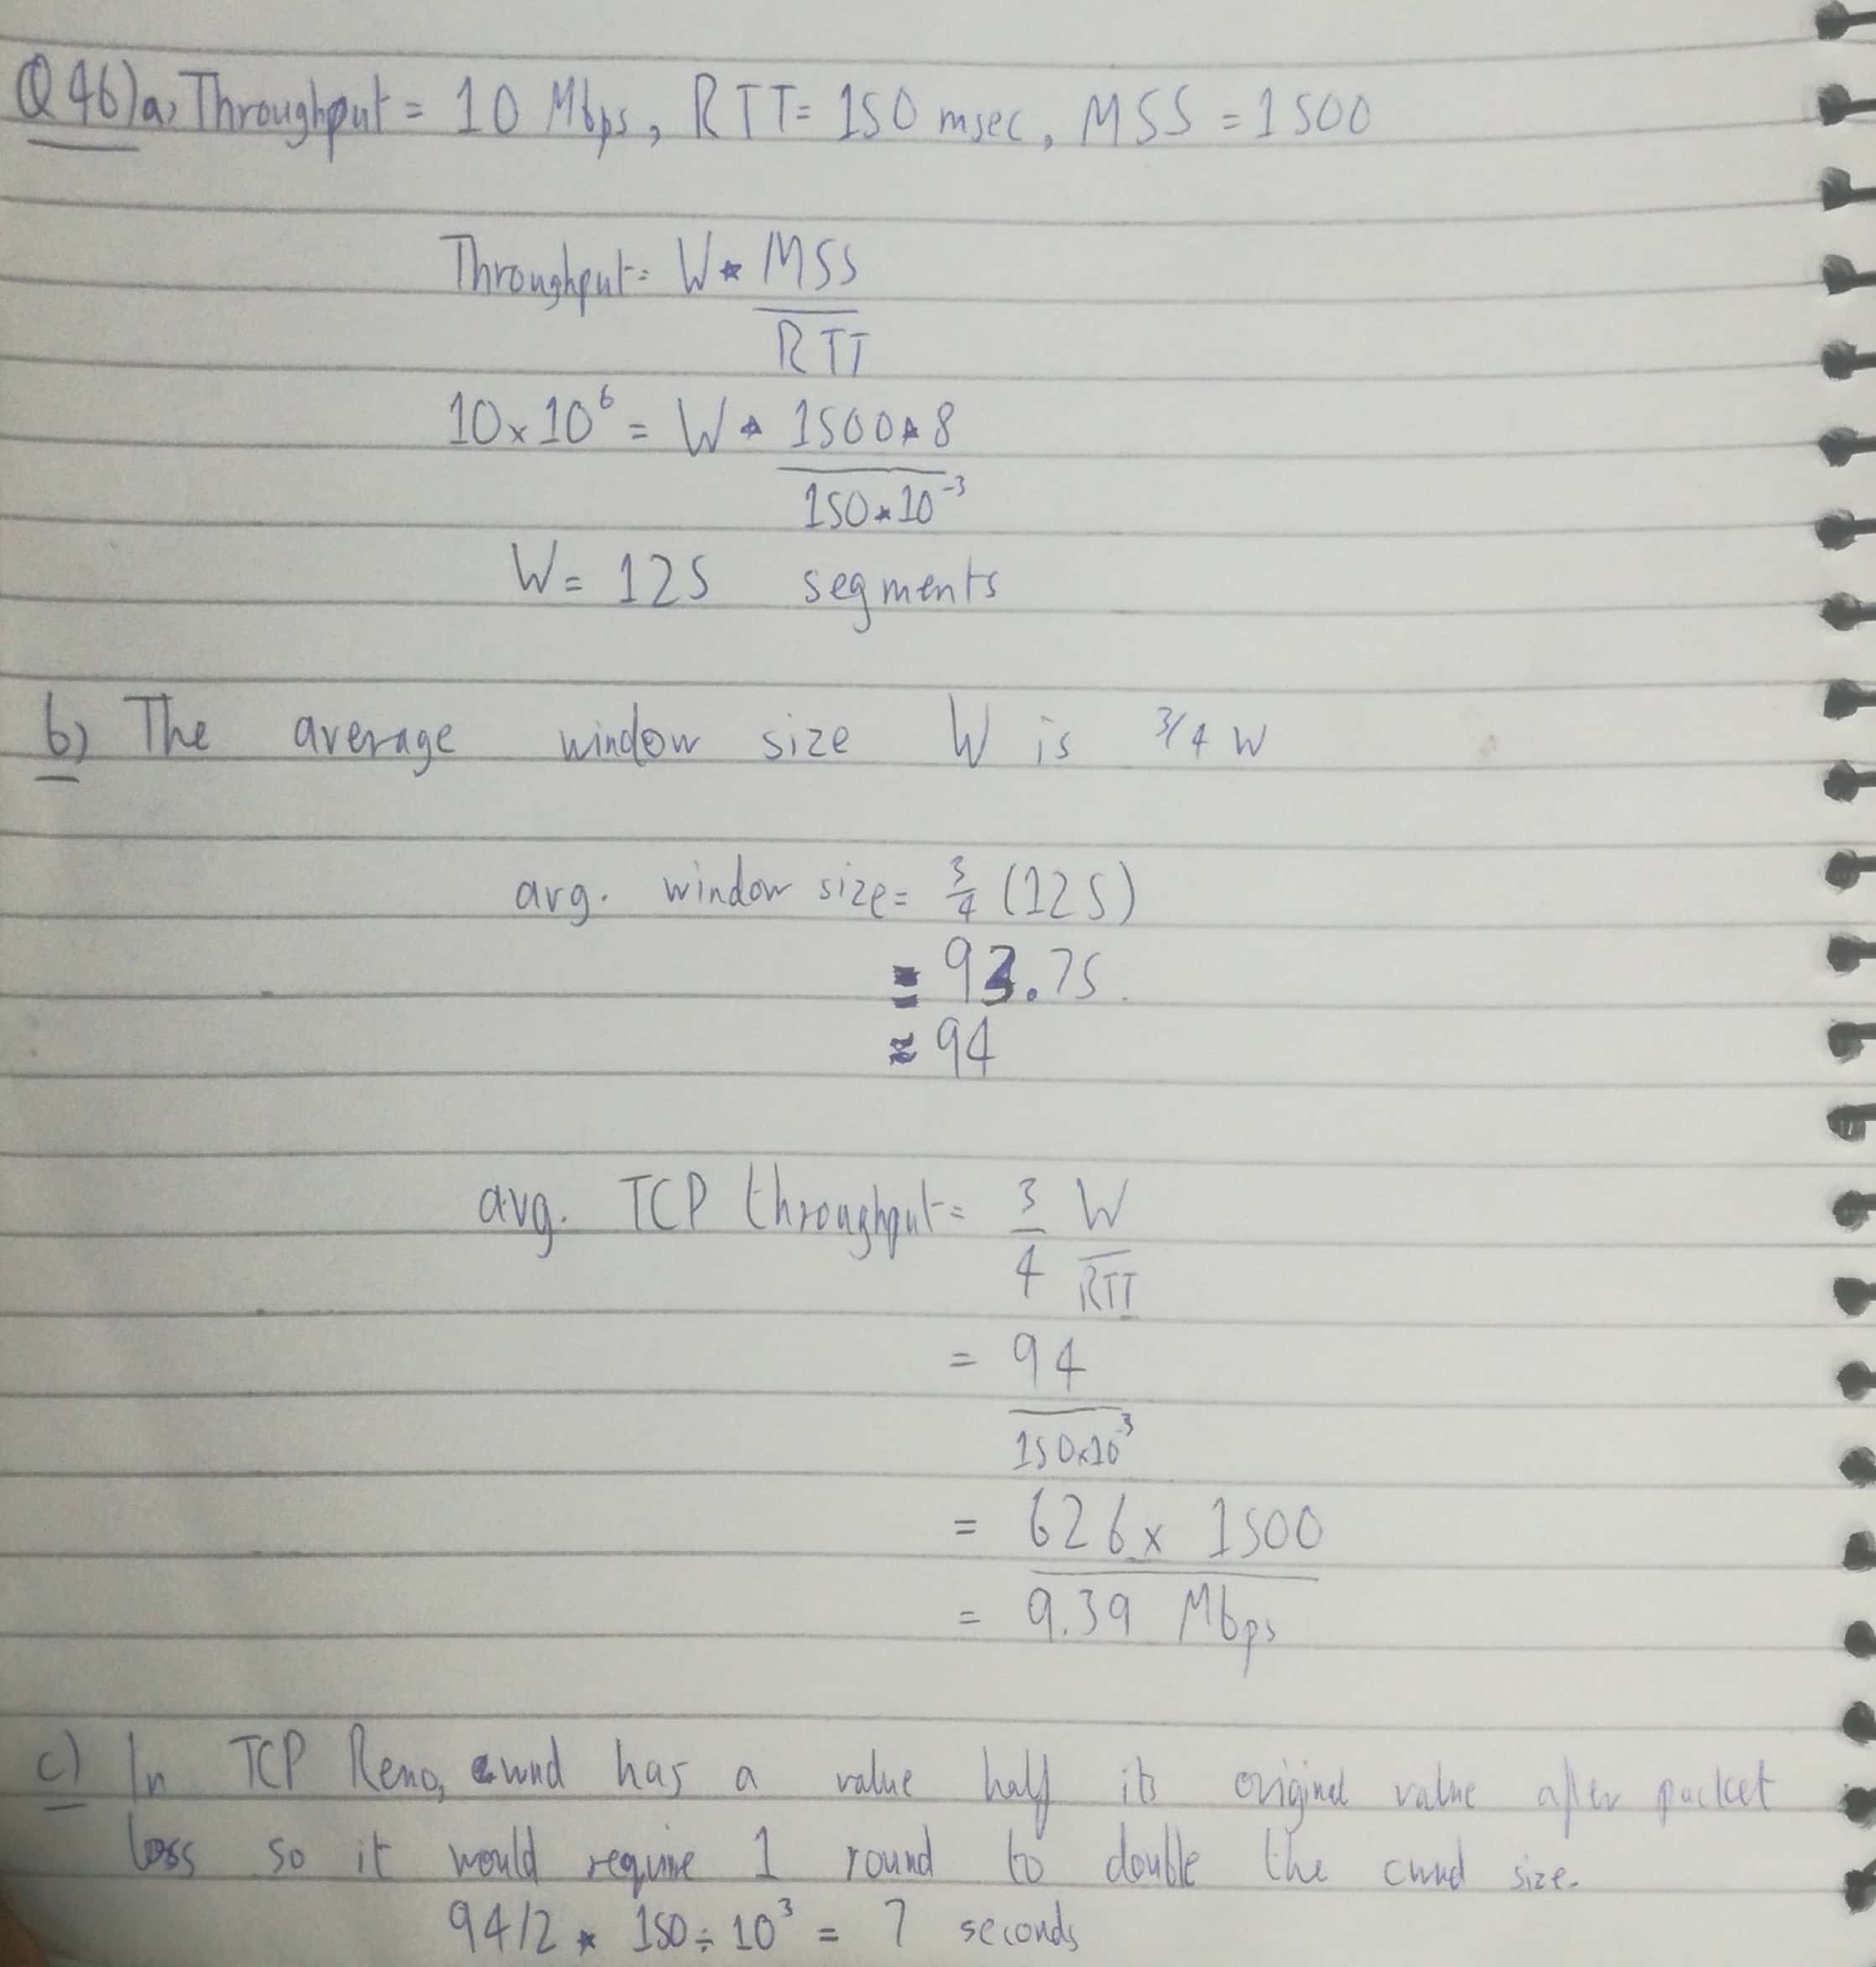 Q46)a, Throughput = 10 Mbps, RTT= 150 msec, MSS = 1500
Throughput = W * MSS
RTT
10 x 10⁶ = W * 1500*8
150*10⁻³
W = 125 segments
b) The average window size W is 3/4 W
avg. window size = 3/4 (125)
= 93.75
≈ 94
avg. TCP throughput = 3 W
4 RTT
= 94
150x10⁻³
= 626 x 1500
= 9.39 Mbps
c) In TCP Reno, cwnd has a value half its original value after packet
loss so it would require 1 round to double the cwnd size.
94/2 * 150 ÷ 10³ = 7 seconds